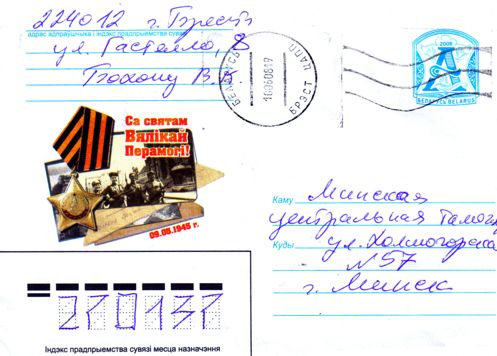 224012 г. Брест
адрас адпраўшчыка і індэкс прадпрыемства сувязі
ул. Гастелло, 8
В. В.
БЕЛАРУСЬ
БРЭСТ ЦАПП
2008
А
БЕЛАРУСЬ BELARUS
Са святам
Вялікай
Перамогі!
09.05.1945 г.
Каму Минская
центральная
Куды ул. Холмогорская
N 57
г. Минск
220137
Індэкс прадпрыемства сувязі месца назначэння